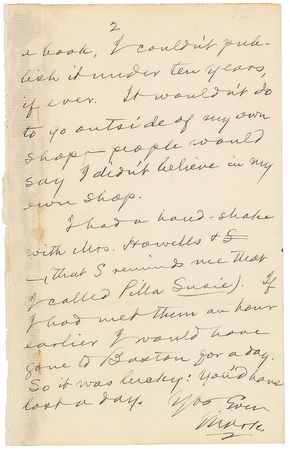 2
a book, I couldn't pub-
lish it under ten years,
if ever. It wouldn't do
to go outside of my own
shop — people would
say I didn't believe in my
own shop.
I had a hand-shake
with Mrs. Howells & S
— (that S reminds me that
I called Pilla Susie). If
I had met them an hour
earlier I would have
gone to Boston for a day.
So it was lucky: You'd have
lost a day. Yrs Ever
Mark